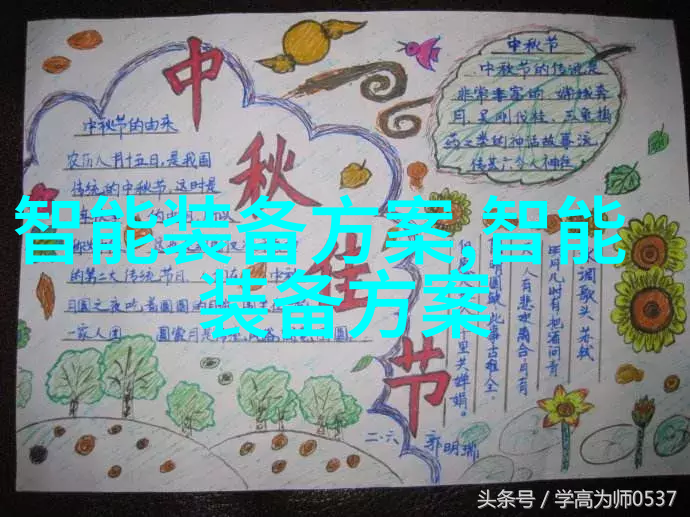 中秋佳节
中秋节的由来
农历八月十五日,是我国
传统的中秋节,这时是
的第二大传统节日
月圆之夜吃着圆圆的月
一家人团
中秋节
中秋节的传说是
非常丰富的,嫦娥奔
月,吴刚伐桂,玉兔捣
药之类的神话故事流
传甚广
水调歌头 苏轼
明月几时有把酒问青
人有悲欢离合月有
阴晴圆缺此事古难全。
但愿人 千里共婵娟。
二.六 郭明瑞
智能装备方案,智能
装备方案
头条号/学高为师0537